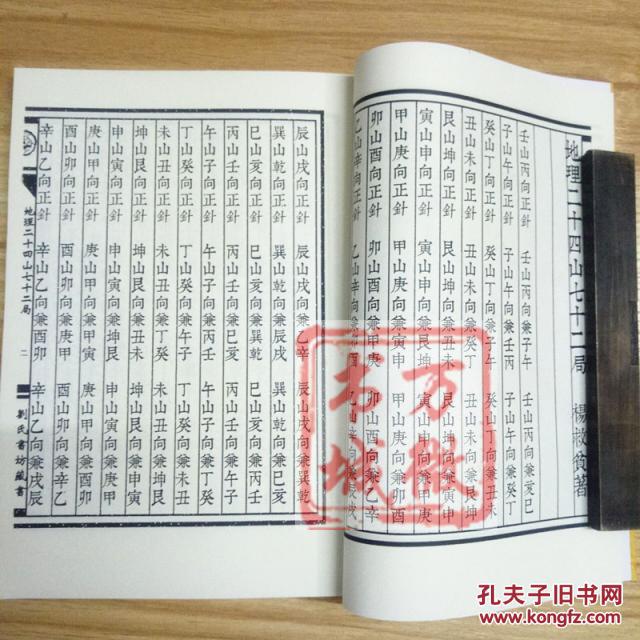 地理二十四山七十二局 楊救貧著
壬山丙向正針 壬山丙向兼子午 壬山丙向兼亥巳
子山午向正針 子山午向兼壬丙 子山午向兼癸丁
癸山丁向正針 癸山丁向兼子午 癸山丁向兼丑未
丑山未向正針 丑山未向兼癸丁 丑山未向兼艮坤
艮山坤向正針 艮山坤向兼丑未 艮山坤向兼寅申
寅山申向正針 寅山申向兼艮坤 寅山申向兼甲庚
甲山庚向正針 甲山庚向兼寅申 甲山庚向兼卯酉
卯山酉向正針 卯山酉向兼甲庚 卯山酉向兼乙辛
乙山辛向正針 乙山辛向兼卯酉 乙山辛向兼辰戌
辰山戌向正針 辰山戌向兼乙辛 辰山戌向兼巽乾
巽山乾向正針 巽山乾向兼辰戌 巽山乾向兼巳亥
巳山亥向正針 巳山亥向兼巽乾 巳山亥向兼丙壬
丙山壬向正針 丙山壬向兼巳亥 丙山壬向兼午子
午山子向正針 午山子向兼丙壬 午山子向兼丁癸
丁山癸向正針 丁山癸向兼午子 丁山癸向兼未丑
未山丑向正針 未山丑向兼丁癸 未山丑向兼坤艮
坤山艮向正針 坤山艮向兼丑未 坤山艮向兼申寅
申山寅向正針 申山寅向兼坤艮 申山寅向兼庚甲
庚山甲向正針 庚山甲向兼申寅 庚山甲向兼酉卯
酉山卯向正針 酉山卯向兼庚甲 酉山卯向兼辛乙
辛山乙向正針 辛山乙向兼酉卯 辛山乙向兼戌辰
地理二十四山七十二局 二 劉氏書坊藏書
万卷
书城
孔夫子旧书网
www.kongfz.com